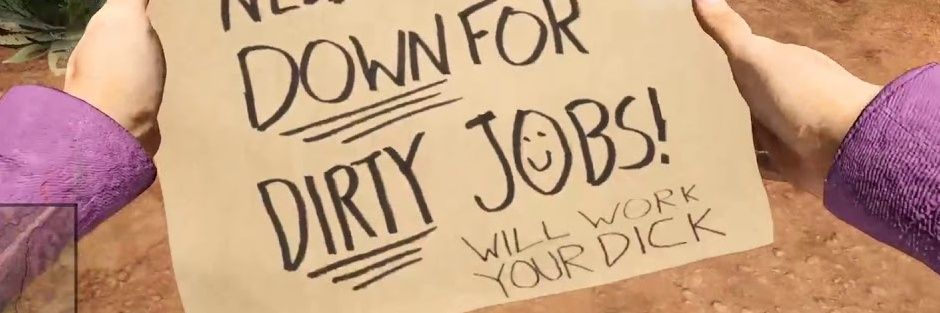 DOWN FOR
DIRTY JOBS!
WILL WORK
YOUR DICK